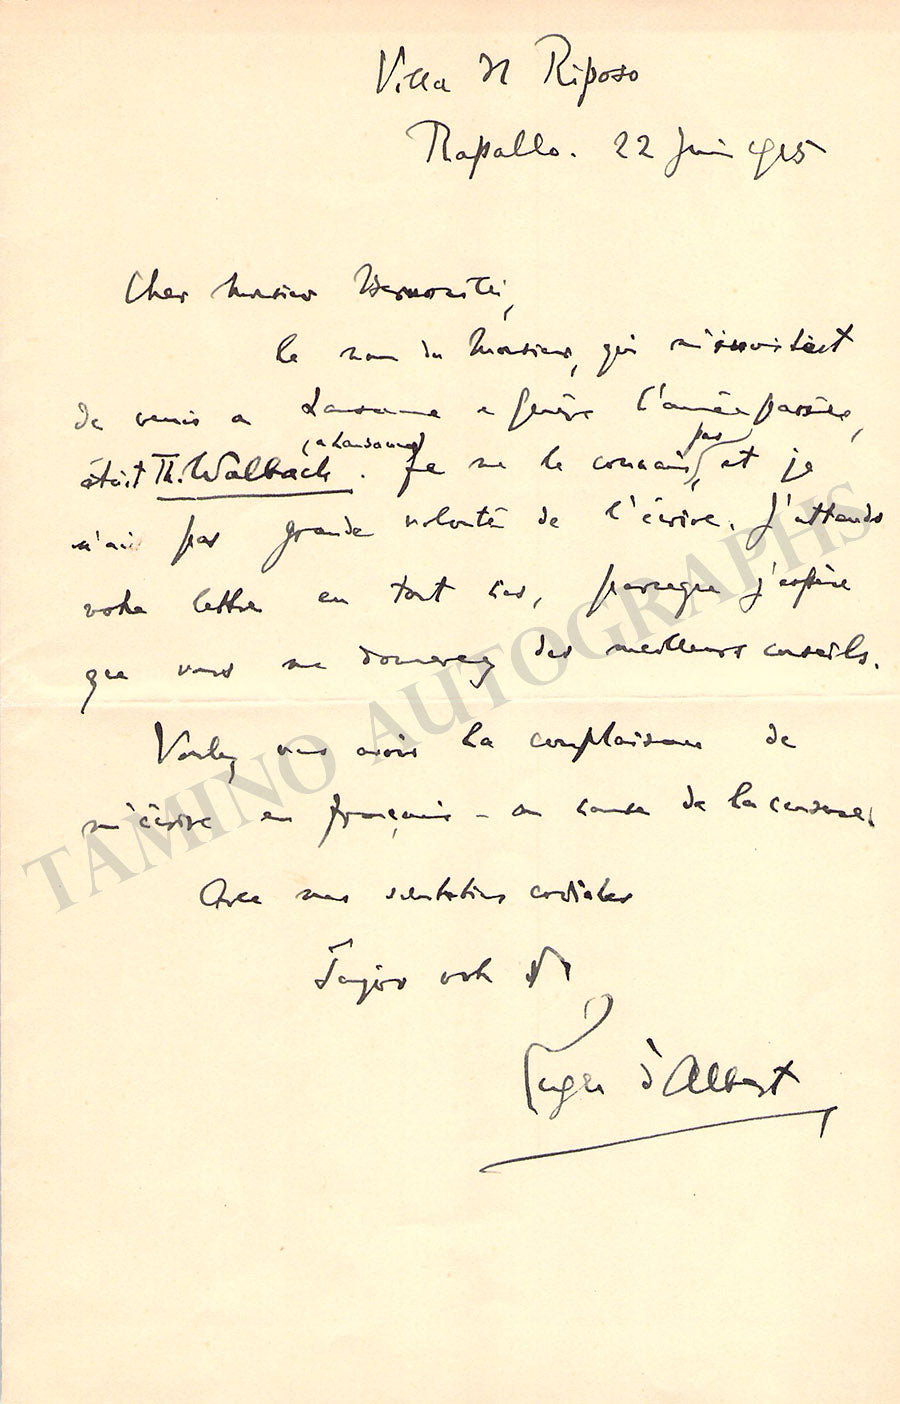 Villa Il Riposo
Rapallo. 22 Juin 1915
Cher Monsieur
le nom du Monsieur, qui m'invitait
de venir a Lausanne e Genève l'année passée,
(a Lausanne)
était Th. Walbach. Je ne le connais pas, et je
n'ai pas grande volonté de l'écrire. J'attends
votre lettre en tout cas, parceque j'espère
que vous me donnerez des meilleurs conseils.
Voulez vous avoir la complaisance de
m'écrire en français - en cause de la censure.
Avec mes salutations cordiales
Toujours votre
Eugen d'Albert
TAMINO AUTOGRAPHS